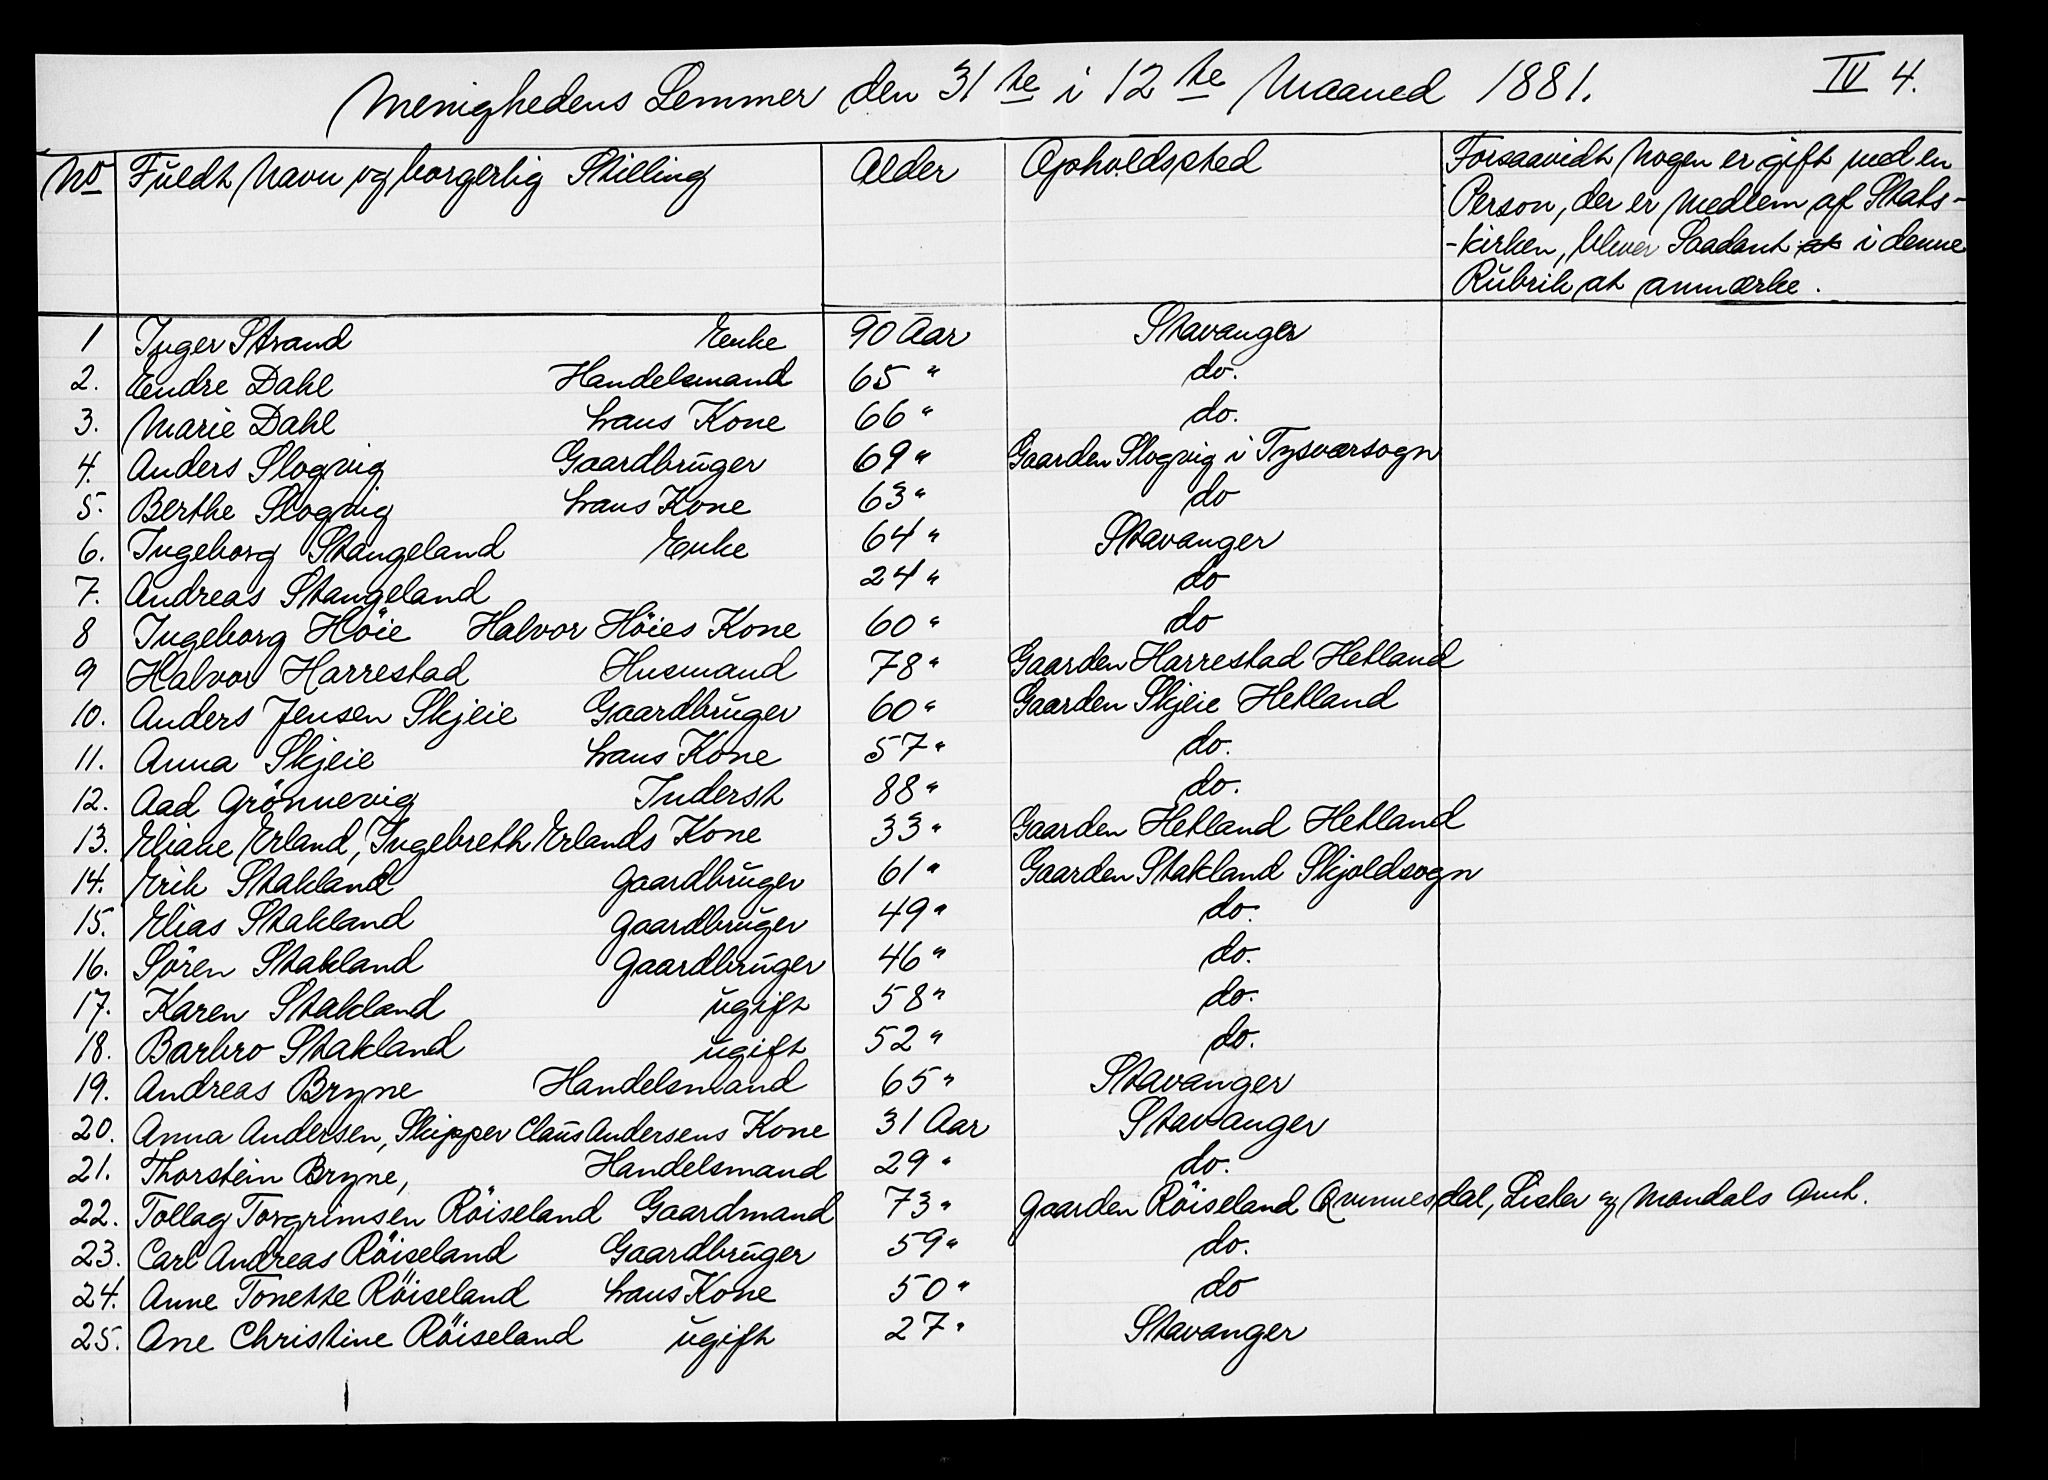 Menighedens Lemmer den 31te i 12te Maaned 1881. IV 4.
No Fuldt Navn og borgerlig Stilling Alder Opholdssted Forsaavidt Nogen er gift med en
Person, der er Medlem af Stats-
-kirken, bliver Saadant at i denne
Rubrik at anmærke.
1 Inger Strand Enke 90 Aar Stavanger
2. Endre Dahl Handelsmand 65 " do.
3. Marie Dahl hans Kone 66 " do.
4. Anders Slogvig Gaardbruger 69 " Gaarden Slogvig i Tysværsogn
5. Berthe Slogvig hans Kone 63 " do
6. Ingeborg Stangeland Enke 64 " Stavanger
7. Andreas Stangeland 24 " do
8 Ingeborg Höie Halvor Höies Kone 60 " do
9 Halvor Harrestad Husmand 78 " Gaarden Harrestad Hetland
10. Anders Jensen Skjeie Gaardbruger 60 " Gaarden Skjeie Hetland
11. Anna Skjeie hans Kone 57 " do.
12. Aad Grönnevig Inderst 88 " do.
13. Eliane Erland, Ingebreth Erlands Kone 33 " Gaarden Hetland Hetland
14. Erik Stakland Gaardbruger 61 " Gaarden Stakland Skjoldsogn
15. Elias Stakland Gaardbruger 49 " do.
16. Sören Stakland Gaardbruger 46 " do.
17. Karen Stakland ugift 58 " do.
18. Barbro Stakland ugift 52 " do.
19. Andreas Bryne Handelsmand 65 " Stavanger
20. Anna Andersen, Skipper Claus Andersens Kone 31 Aar Stavanger
21. Thorstein Bryne, Handelsmand 29 " do.
22. Tollag Torgrimsen Röiseland Gaardmand 73 " Gaarden Röiseland Qvinnesdal, Lister og Mandals Amt.
23. Carl Andreas Röiseland Gaardbruger 59 " do.
24. Anne Tonette Röiseland hans Kone 50 " do
25. Ane Christine Röiseland ugift 27 " Stavanger